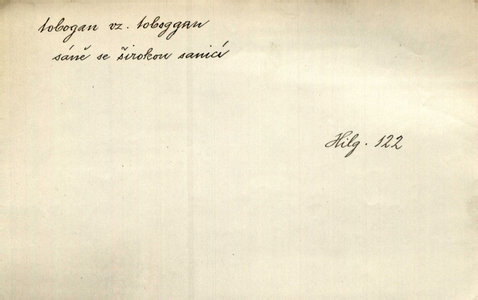 tobogan vz. toboggan
sáně se širokou sanicí
Hilg. 122